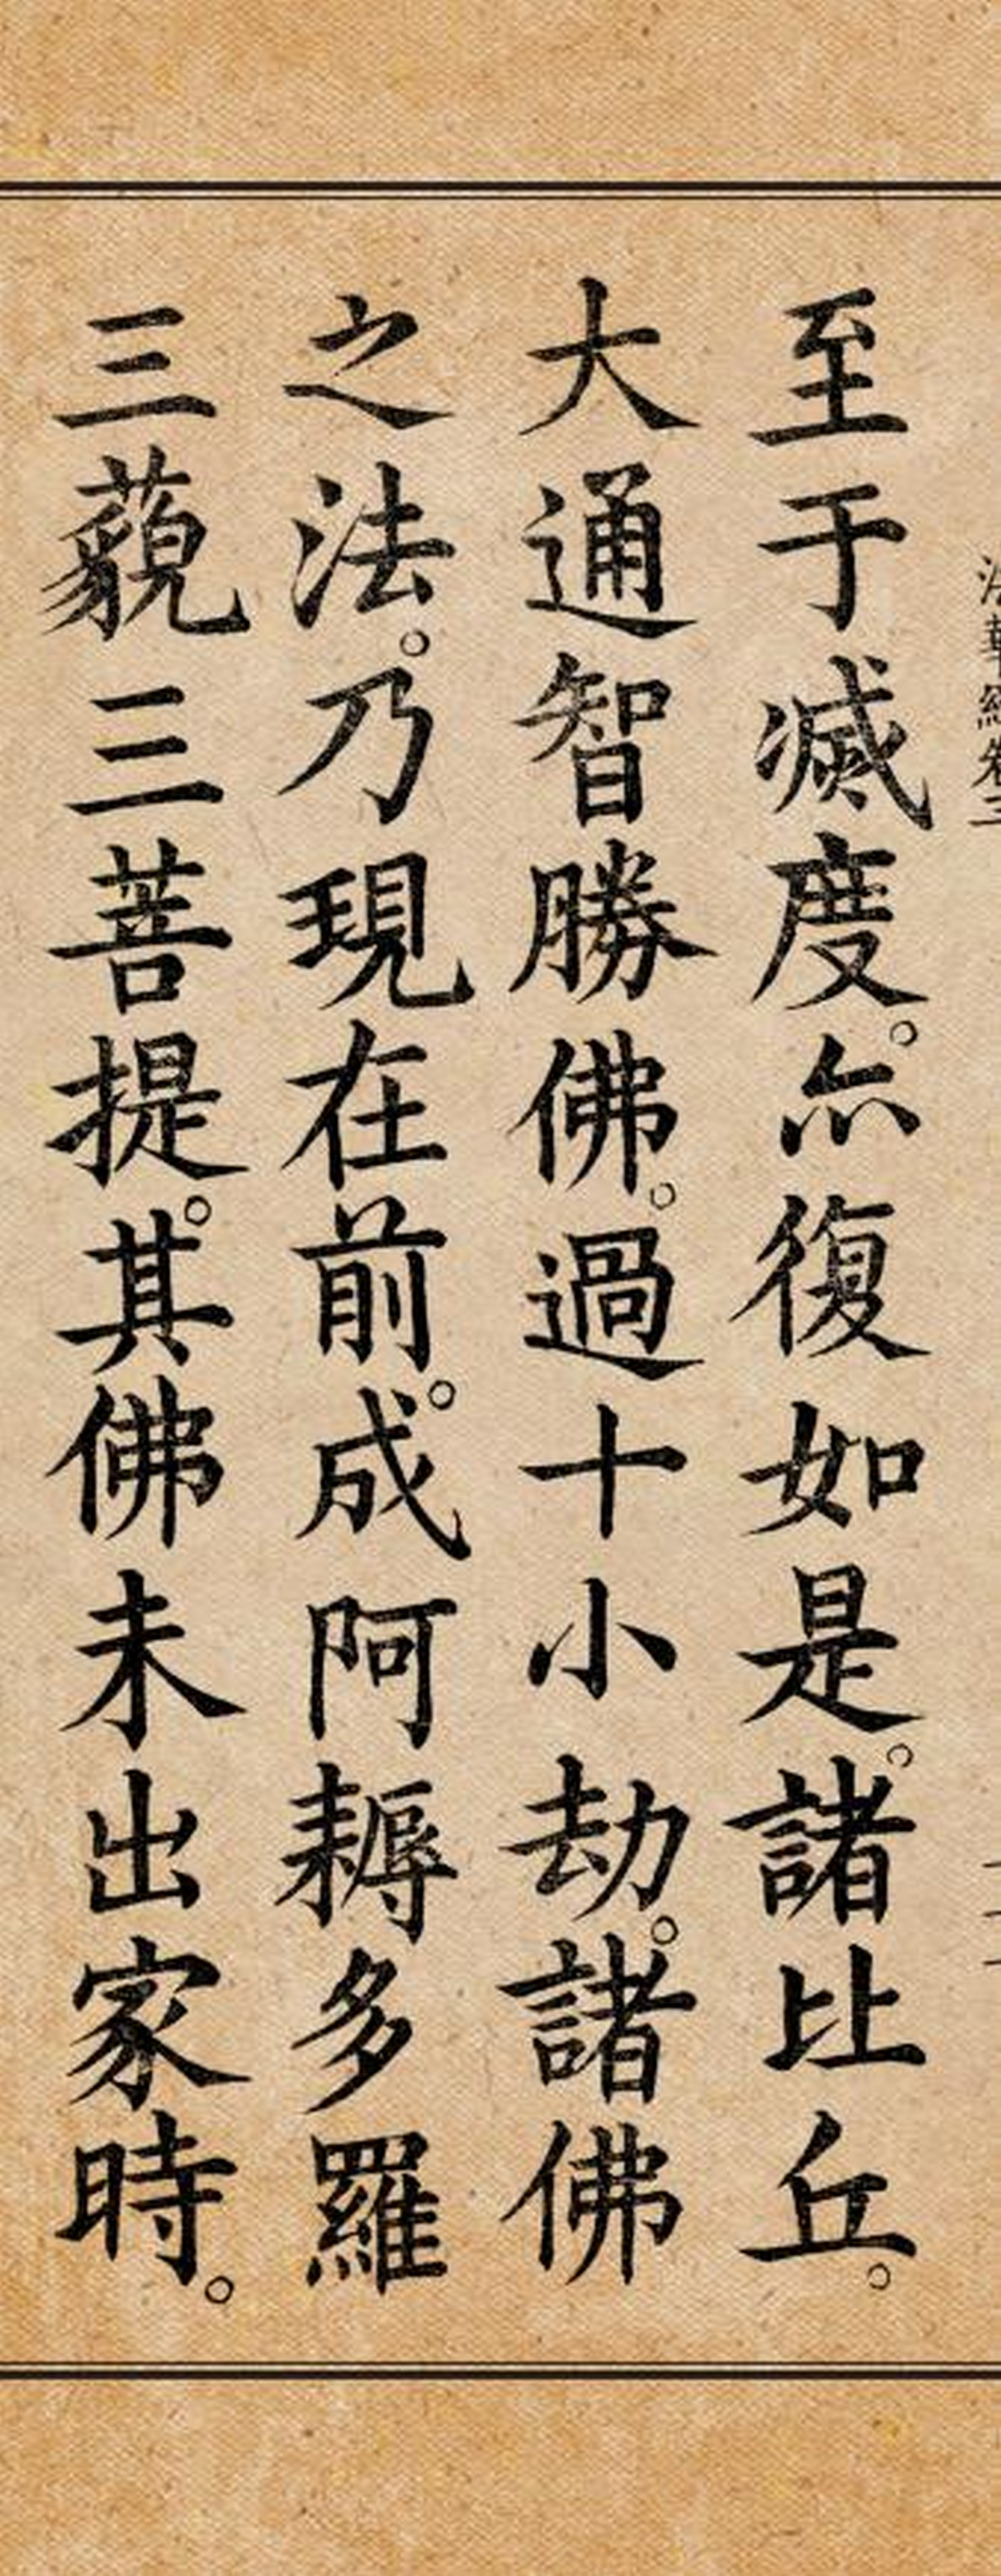 法華經卷三
至于滅度。亦復如是。諸比丘。
大通智勝佛。過十小劫。諸佛
之法。乃現在前。成阿耨多羅
三藐三菩提。其佛未出家時。